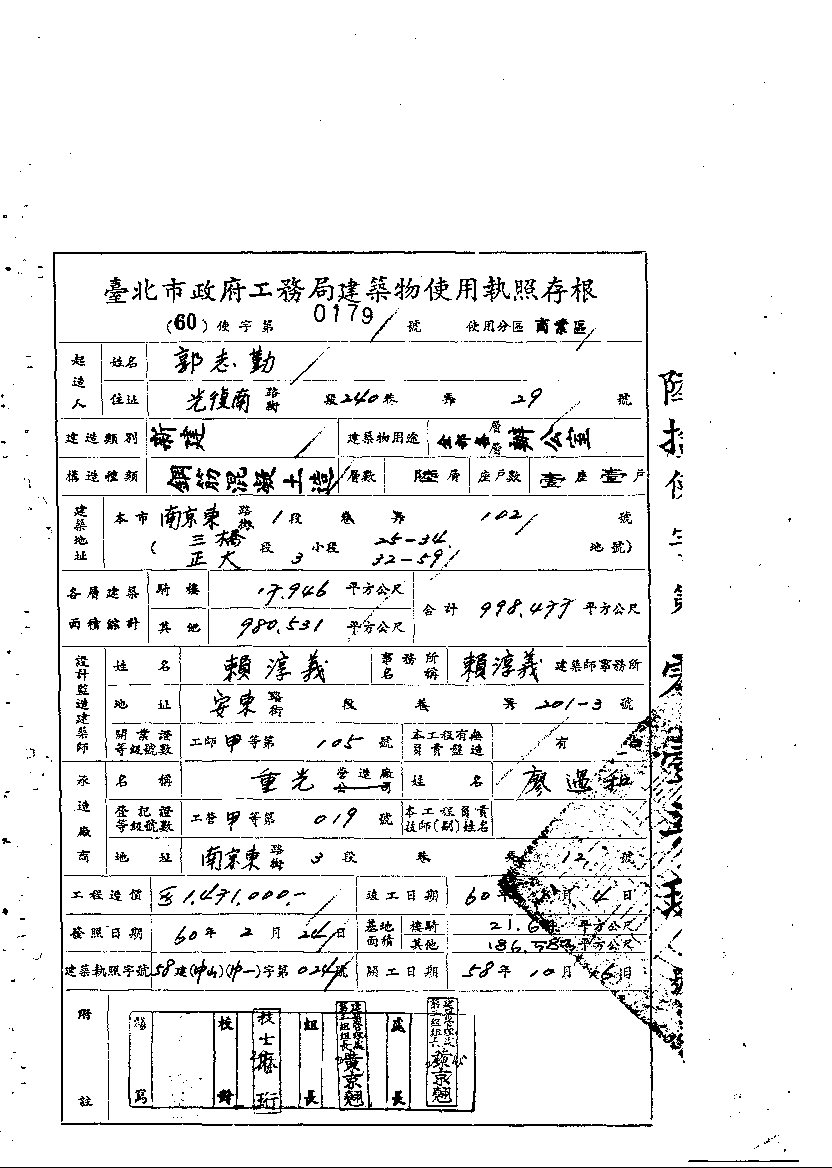 臺北市政府工務局建築物使用執照存根
(60)使字第 0179 號 使用分區 商業區
起造人 姓名 郭志勤
住址 光復南 路街 段 240 巷 弄 29 號
建造類別 新建 建築物用途 全部各層層 辦公室
構造種類 鋼筋混凝土造 層數 陸層 座戶數 壹座壹戶
建築地址 本市 南京東 路街 1 段 巷 弄 102 號
( 三橋 段 小段 25-34 地號)
正大 3 32-59
各層建築面積總計 騎樓 17.946 平方公尺 合計 998.477 平方公尺
其他 980.531 平方公尺
設計監造建築師 姓名 賴淳義 事務所名稱 賴淳義 建築師事務所
地址 安東 路街 段 巷 弄 201-3 號
開業證等級號數 工師甲等第 105 號 本工程有無負責監造 有
承造廠商 名稱 重光 營造廠公司 姓名 廖過和
登記證等級號數 工營甲等第 019 號 本工程負責技師(副)姓名
地址 南京東 路街 3 段 巷 弄 12 號
工程造價 1,471,000.- 竣工日期 60 年 月 4 日
發照日期 60 年 2 月 24 日 基地面積 樓騎 21.6 平方公尺
其他 186. 平方公尺
建築執照字號 58 建(中山)(中一)字第 024 號 開工日期 58 年 10 月 6 日
附註 繕寫 校對 技士 珩 組長 黃京翹 處長
陸拾使字第